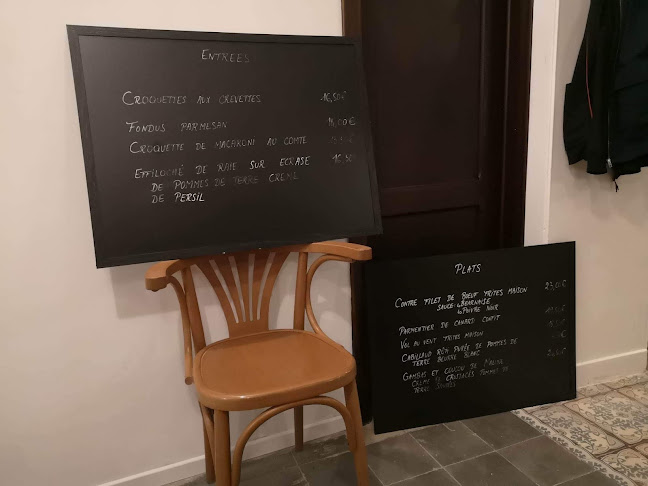 ENTREES
CROQUETTES AUX CREVETTES 16,50€
FONDUS PARMESAN 14,00€
CROQUETTE DE MACARONI AU COMTE
EFFILOCHÉ DE RAIE SUR ECRASE 16,50
DE POMMES DE TERRE CREME
DE PERSIL
PLATS
CONTRE FILET DE BOEUF FRITES MAISON 23,00€
SAUCE: BEARNAISE
POIVRE NOIR
PARMENTIER DE CANARD CONFIT
VOL AU VENT FRITES MAISON
CABILLAUD RÔTI PURÉE DE POMMES DE
TERRE BEURRE BLANC
GAMBAS ET
CREME DE CRUSTACÉS POMMES DE
TERRE